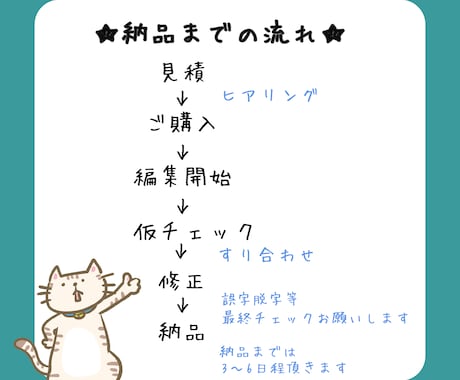 ★納品までの流れ★
見積
↓
ヒアリング
ご購入
↓
編集開始
↓
仮チェック
↓
すり合わせ
修正
↓
誤字脱字等
最終チェックお願いします
納品
納品までは
3〜6日程頂きます